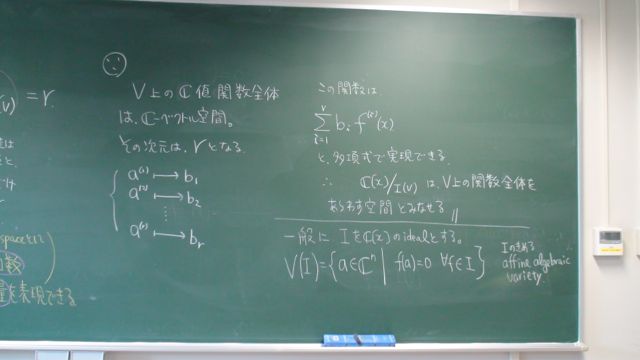 (V) = r.
space として
を表現できる
V上の ℂ 値関数全体
は、ℂ-ベクトル空間。
その次元は、r となる。
a⁽¹⁾ ⟼ b₁
a⁽²⁾ ⟼ b₂
⋮
a⁽ʳ⁾ ⟼ bᵣ
この関数は、
r
∑ bᵢ f⁽ⁱ⁾(x)
i=1
と、多項式で実現できる。
∴ ℂ[x]/I(V) は、V上の関数全体を
あらわす空間とみなせる 〃
一般に I を ℂ[x] の ideal とする。
V(I) = {a∈ℂⁿ | f(a)=0 ∀f∈I}
I のきめる
affine algebraic
variety.